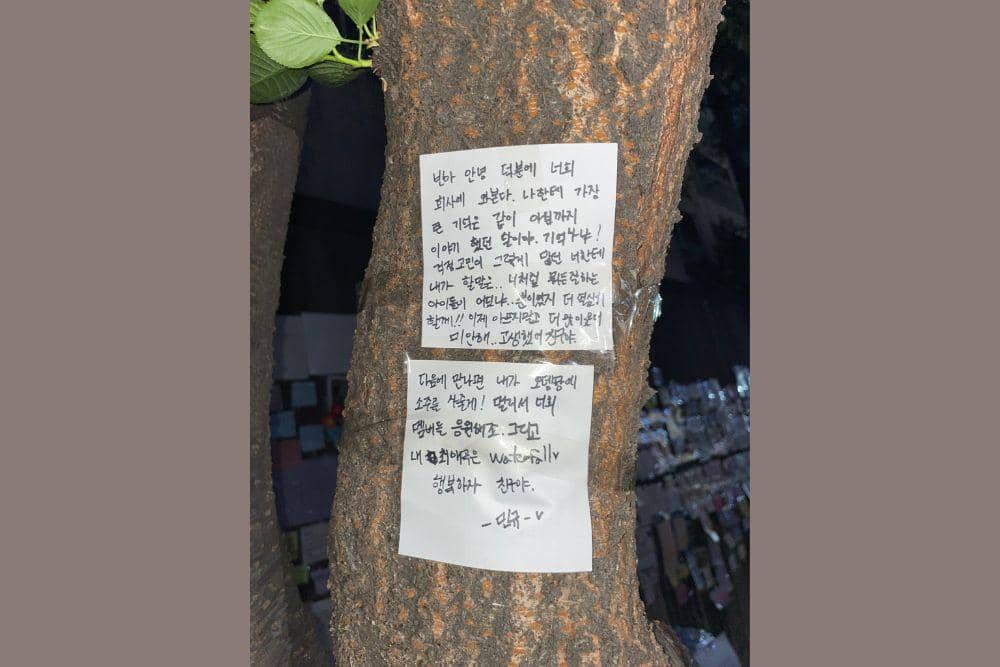 빈아 안녕 덕분에 너희
회사에 와본다. 나한테 가장
큰 기억은 같이 아침까지
이야기 했던 날이야. 기억나냐!
걱정고민이 그렇게 많던 너한테
내가 할말은.. 너처럼 뭐든잘하는
아이돌이 어딨냐.. 더 열심히
할게!! 이제 아프지말고 더
미안해.. 고생했어 친구야.
다음에 만나면 내가 오뎅탕에
소주를 사줄게! 멀리서 너희
멤버들 응원해줘. 그리고
내 최애곡은 waterfall
행복하자 친구야.
- 민규 -